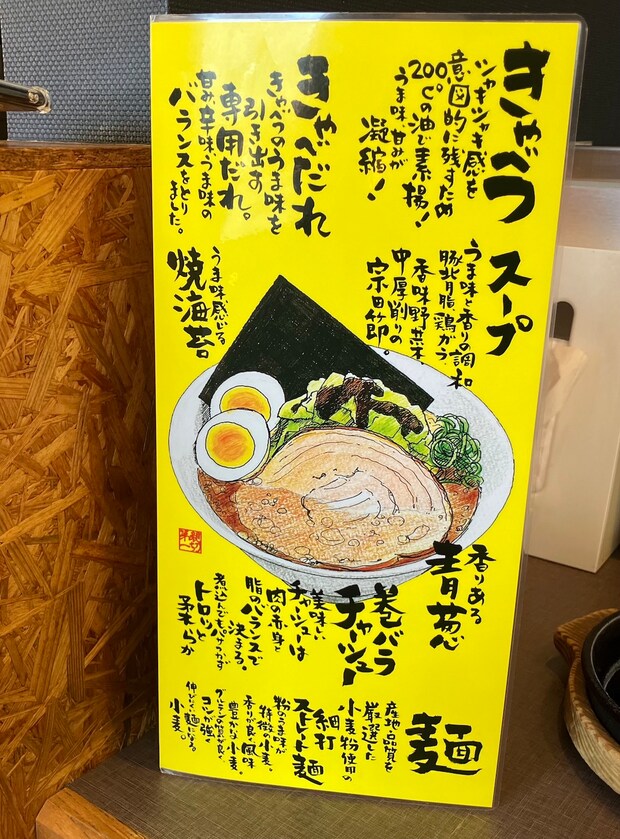 きゃべつ
シャキシャキ感を
意図的に残すため
200℃の油で素揚!
うま味、甘みが
凝縮!
きゃべだれ
きゃべつのうま味を
引き出す
専用だれ。
甘み、辛味、うま味の
バランスをとり
ました。
スープ
うま味と香りの調和
豚背脂、鶏がら、
香味野菜、
中厚削りの
宗田節。
うま味感じる
焼海苔
香りある
青葱
巻バラ
チャーシュー
美味しい
チャーシューは
肉の赤身と
脂のバランスで
決まる。
煮込んでもパサつかず
トロッと
柔らか
麺
産地、品質を
厳選した
小麦粉使用の
細打
ストレート麺
粉のうま味が
特徴の小麦。
香りが良く風味
豊かな小麦。
グルテンの質が良く
コシが強く
伸びにくい麺になる。
小麦。